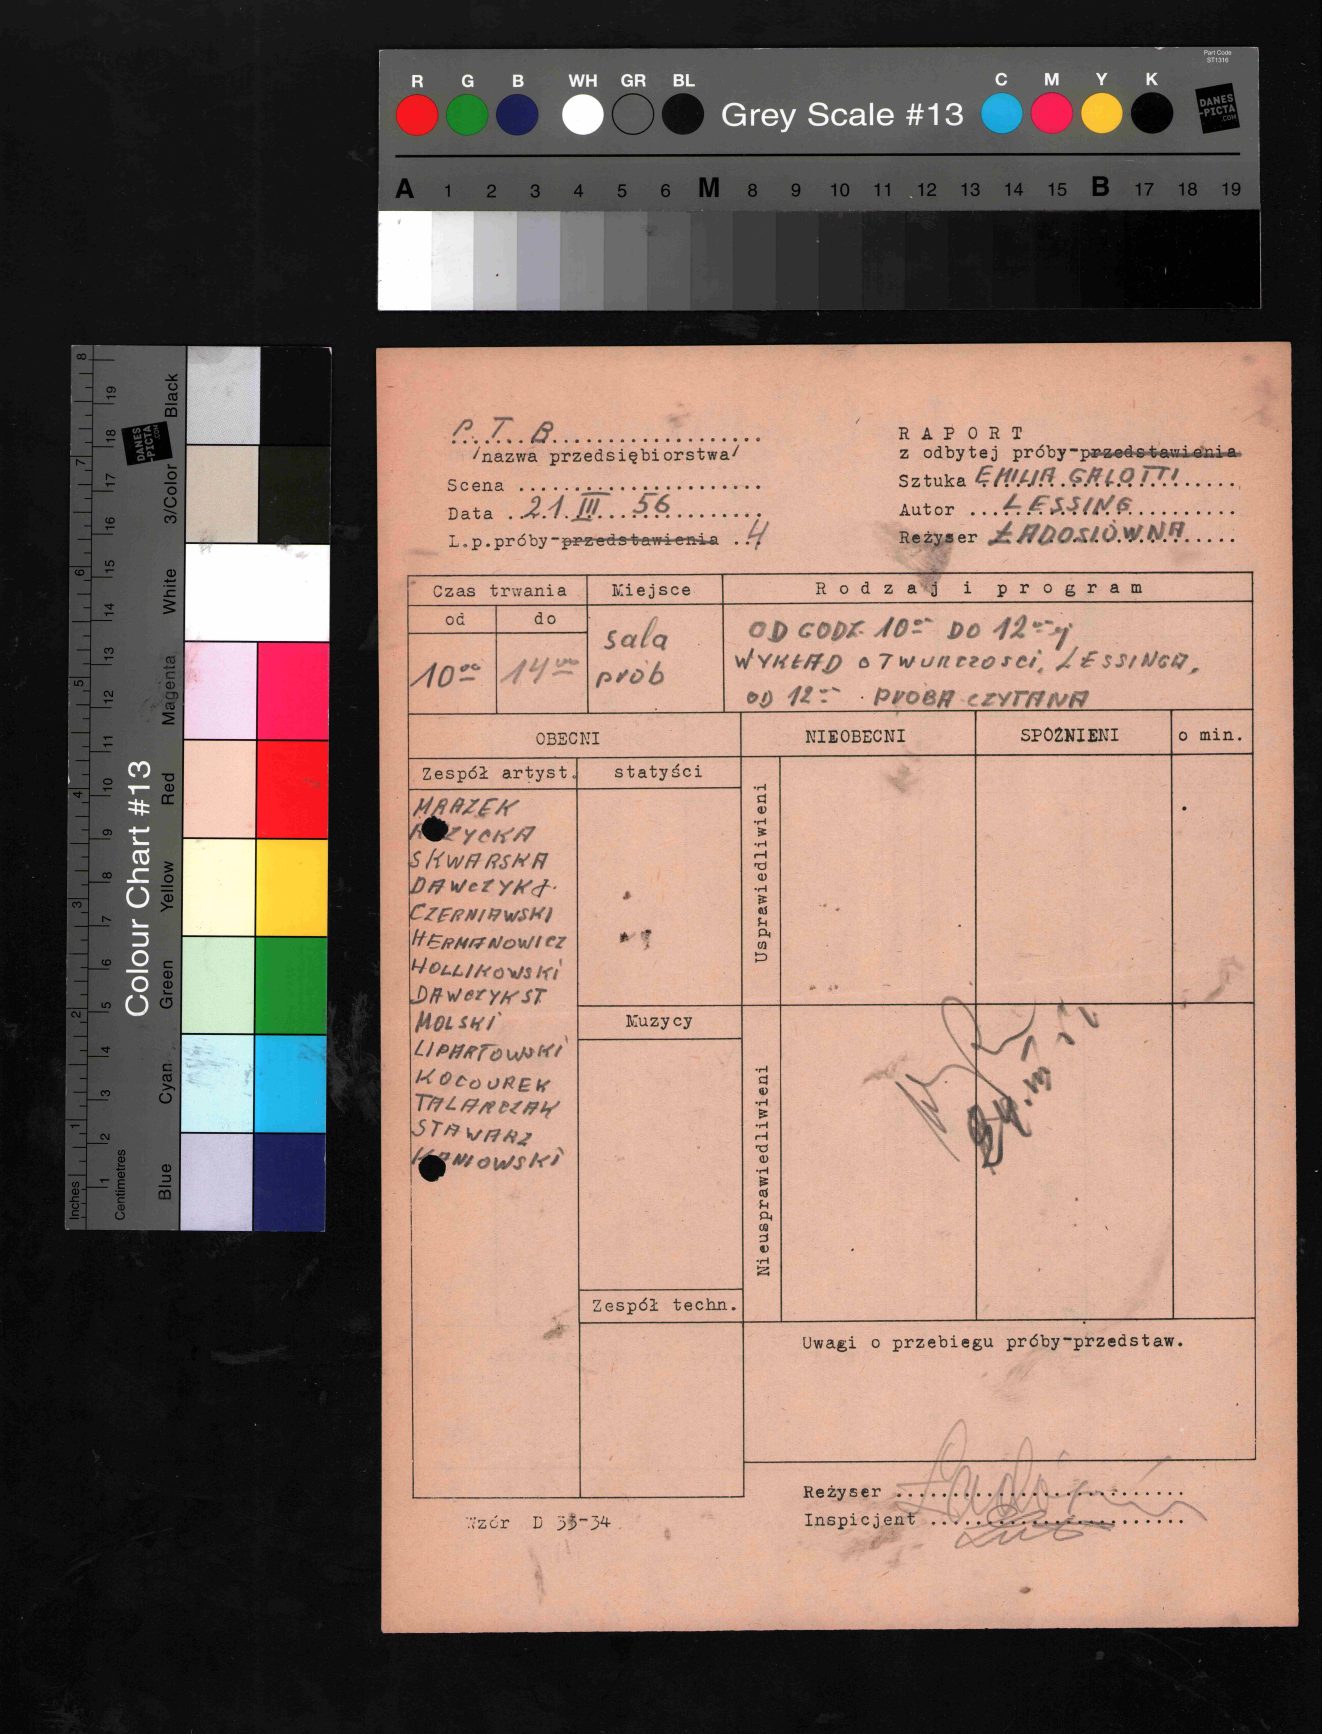 Part Code
ST1316
R G B WH GR BL Grey Scale #13 C M Y K
DANES
-PICTA
.COM
A 1 2 3 4 5 6 M 8 9 10 11 12 13 14 15 B 17 18 19
Colour Chart #13
Blue Cyan Green Yellow Red Magenta White 3/Color Black
DANES
-PICTA
.COM
Inches 1 2 3 4 5 6 7 8
Centimetres 1 2 3 4 5 6 7 8 9 10 11 12 13 14 15 16 17 18 19
P. T. B.
/nazwa przedsiębiorstwa/
Scena
Data 21. III. 56
L.p.próby-przedstawienia 4
RAPORT
z odbytej próby-przedstawienia
Sztuka EMILIA GALOTTI
Autor LESSING
Reżyser ŁADOSIÓWNA
Czas trwania Miejsce Rodzaj i program
od do
10 00 14 00
sala
prób
OD GODZ. 10 DO 12
WYKŁAD O TWURCZOSCI, LESSINGA,
OD 12 PRÓBA CZYTANA
OBECNI NIEOBECNI SPÓŹNIENI o min.
Zespół artyst. statyści
Usprawiedliwieni
MRAZEK
SKWARSKA
DAWCZYK J.
CZERNIAWSKI
HERMANOWICZ
HOLLIKOWSKI
DAWCZYK ST
MOLSKI
LIPARTOWSKI
KOCOUREK
TALARCZAK
STAWARZ
KANIOWSKI
Muzycy
Nieusprawiedliwieni
Zespół techn.
Uwagi o przebiegu próby-przedstaw.
Reżyser
Inspicjent
Wzór D 33-34